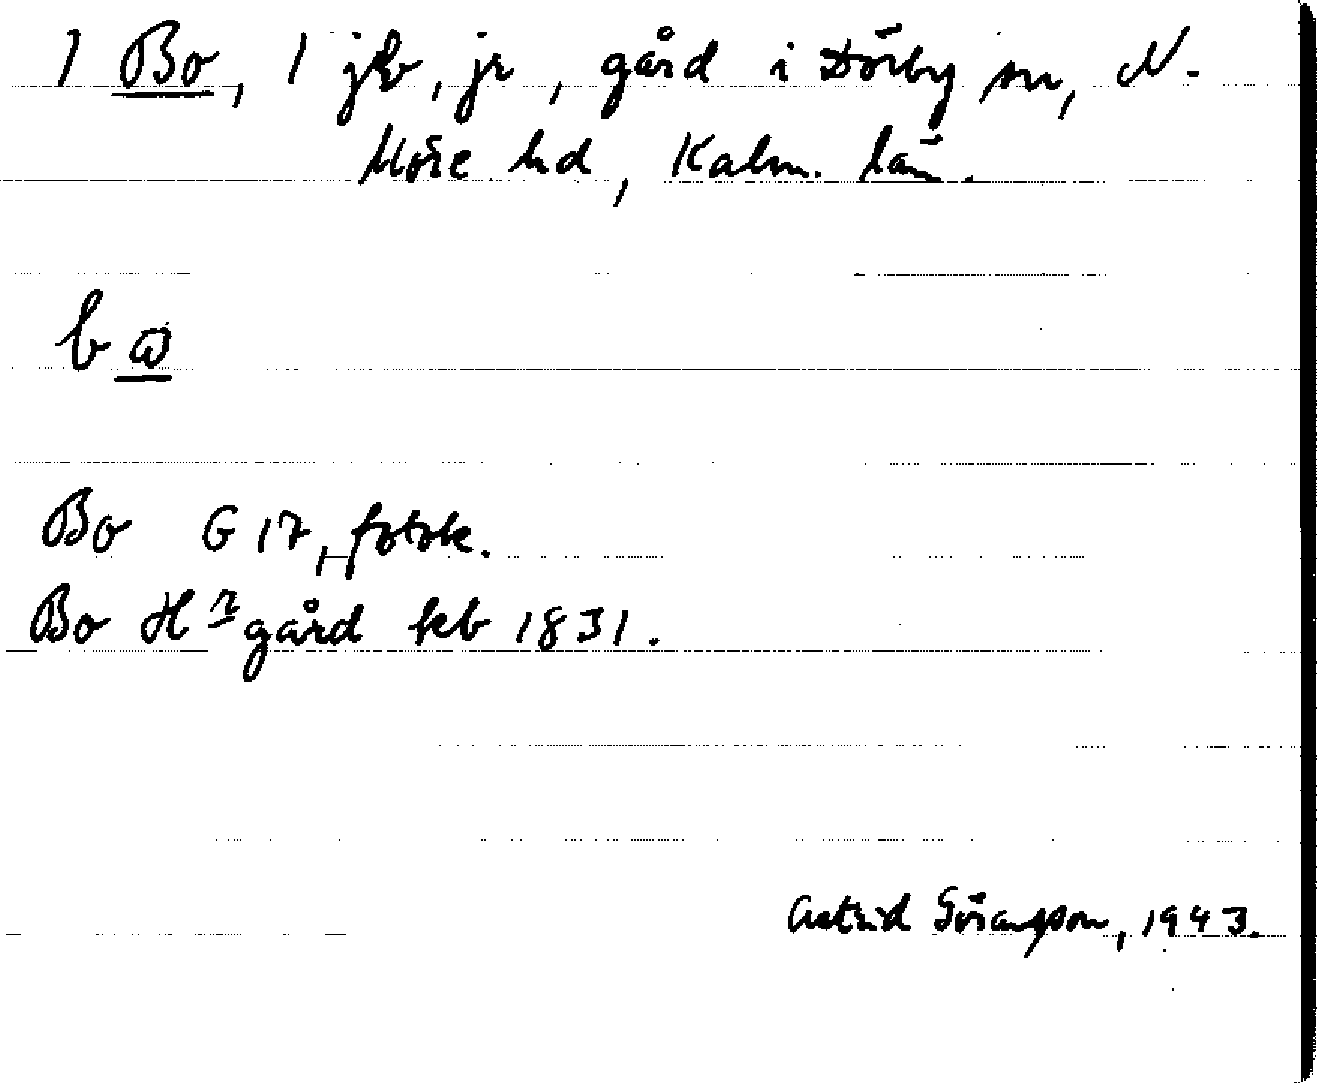 1 Bo, 1 jb, jr, gård i Dörby sn, N.
Möre hd, Kalm. län.
b
Bo G 17, fotok.
Bo Hrgård kb 1831.
Astrid Göransson, 1943.